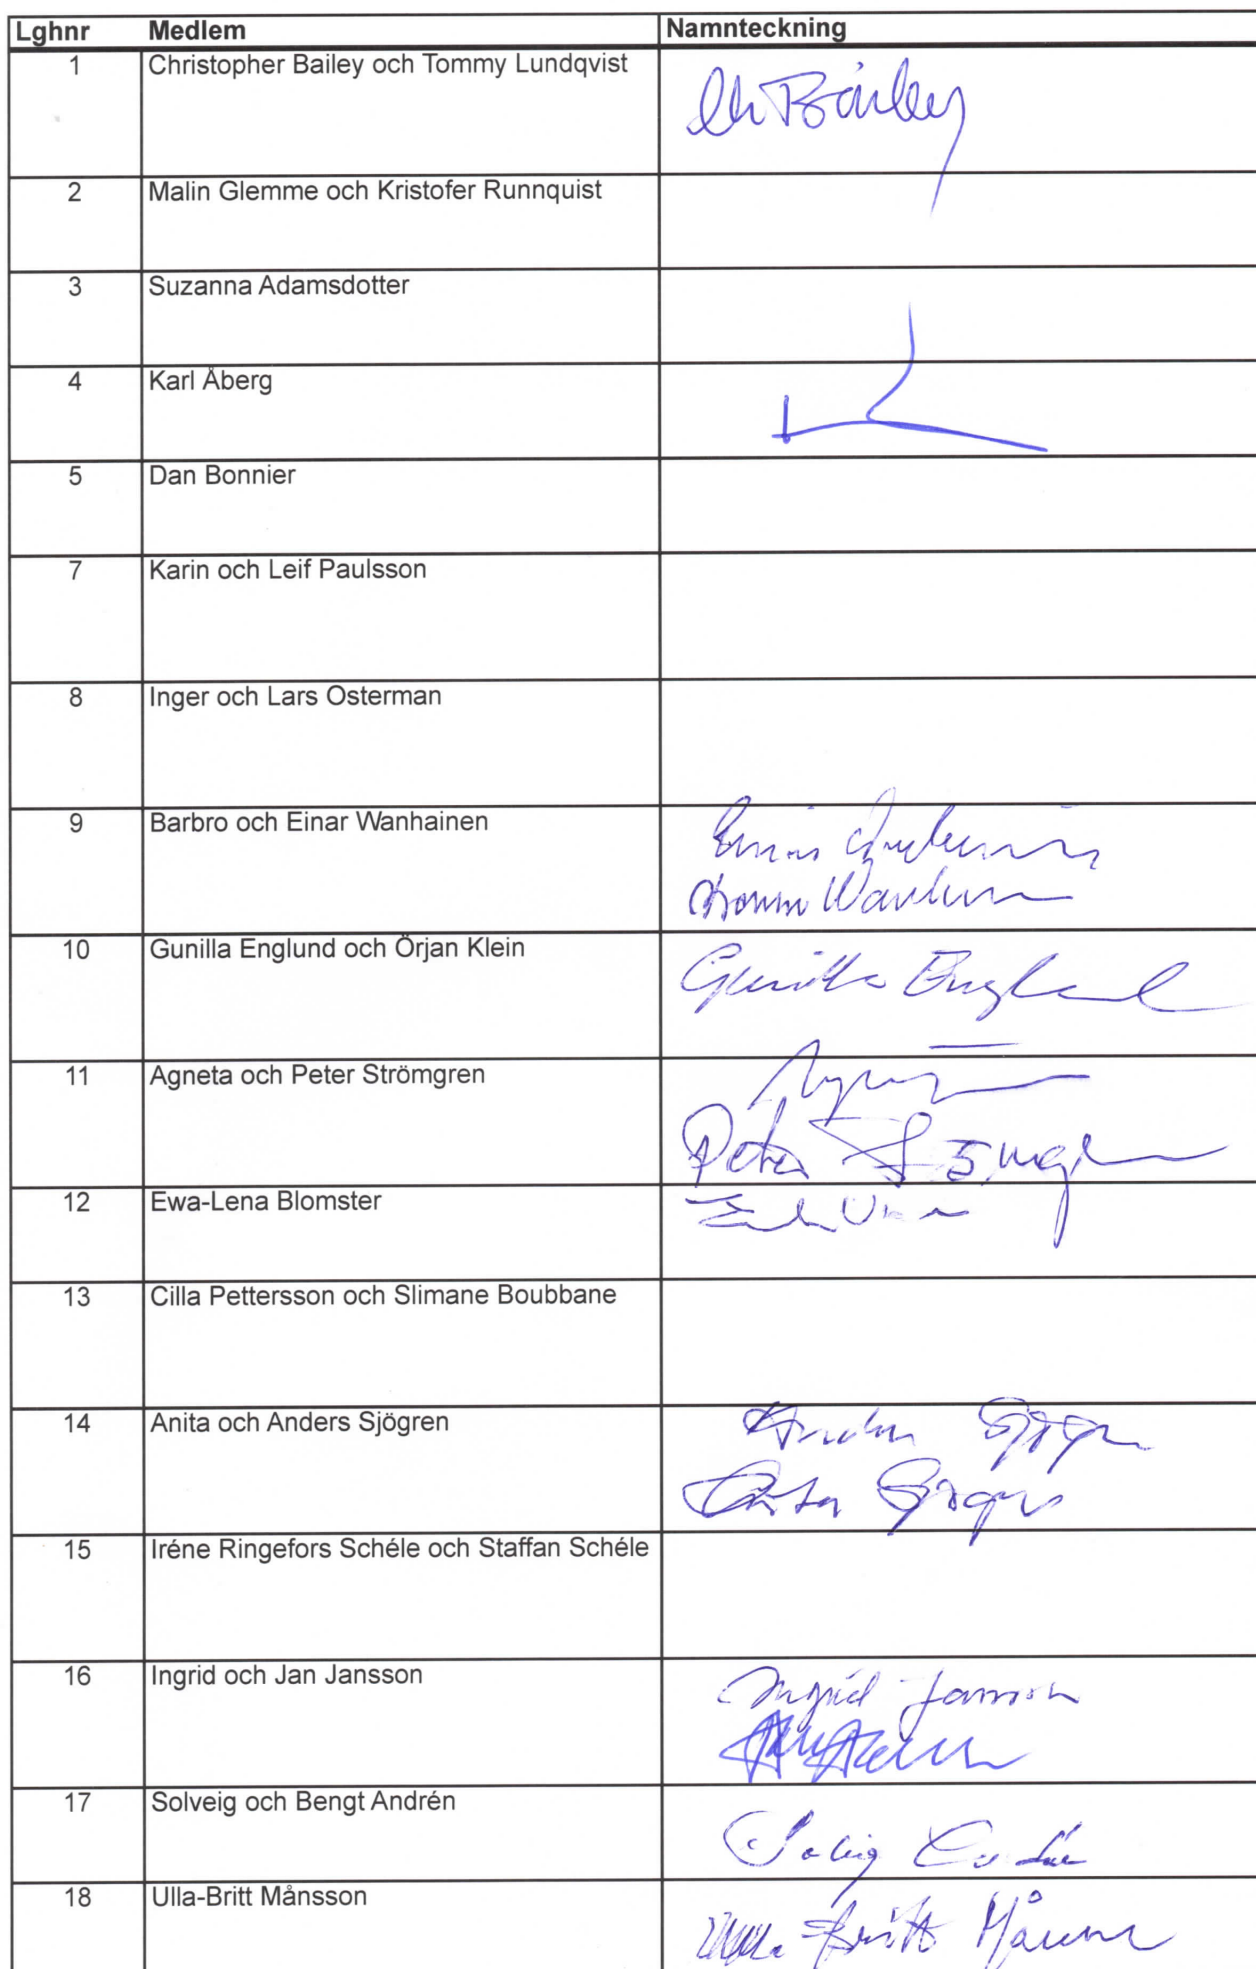 Lghnr Medlem Namnteckning
1 Christopher Bailey och Tommy Lundqvist Ch Bailey
2 Malin Glemme och Kristofer Runnquist
3 Suzanna Adamsdotter
4 Karl Åberg
5 Dan Bonnier
7 Karin och Leif Paulsson
8 Inger och Lars Osterman
9 Barbro och Einar Wanhainen
10 Gunilla Englund och Örjan Klein Gunilla Englund
11 Agneta och Peter Strömgren
Peter
12 Ewa-Lena Blomster
13 Cilla Pettersson och Slimane Boubbane
14 Anita och Anders Sjögren Anders Sjögren
Anita Sjögren
15 Iréne Ringefors Schéle och Staffan Schéle
16 Ingrid och Jan Jansson Ingrid Jansson
17 Solveig och Bengt Andrén Solveig Andrén
18 Ulla-Britt Månsson Ulla-Britt Månsson